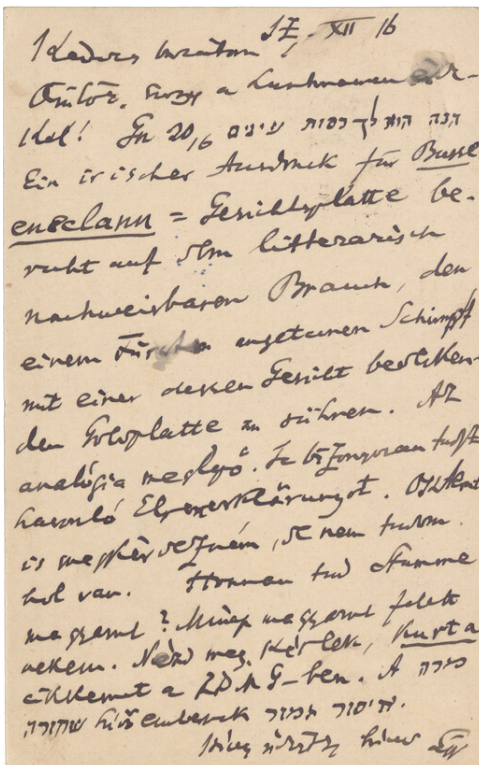 Kedves barátom! XII 16
hogy a
kel! Gn 20,16 הנה הוא לך כסות עינים
Ein irischer Ausdruck für Busse
eneclann = Gesichtsplatte be-
ruht auf dem litterarisch
nachweisbaren Brauch, den
einem Fürsten angetanen Schimpf
mit einer dessen Gesicht bedecken-
den Goldplatte zu sühnen. Az
analógia meglepő. Te bizonyosan tudsz
hasonló Ehrenerklärungot.
is megkérdezném, de nem tudom
hol van. Honnan tud Stumme
magyarul? Minap magyarul felelt
nekem. Nézd meg, kérlek, kurta
cikkemet a ZDMG-ben. A מירה
שחורה emberek איסור חמור.
híved